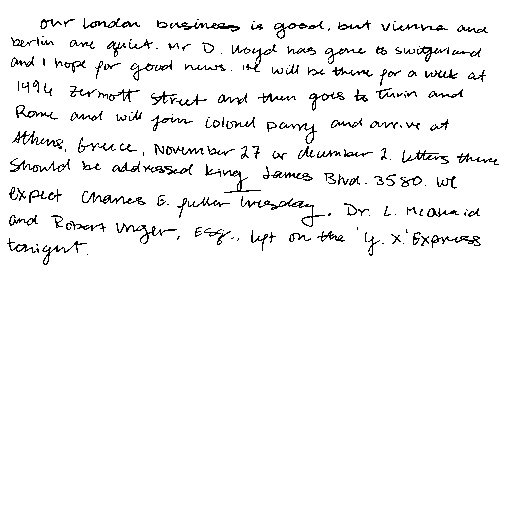 Our London business is good, but Vienna and
Berlin are quiet. Mr D. Lloyd has gone to Switzerland
and I hope for good news. He will be there for a week at
1496 Zermott Street and then goes to Turin and
Rome and will join Colonel Parry and arrive at
Athens, Greece, November 27 or December 2. Letters there
Should be addressed King James Blvd. 3580. We
expect Charles E. Fuller Tuesday. Dr. L. McQuaid
and Robert Unger, Esq., left on the 'Y. X.' Express
tonight.